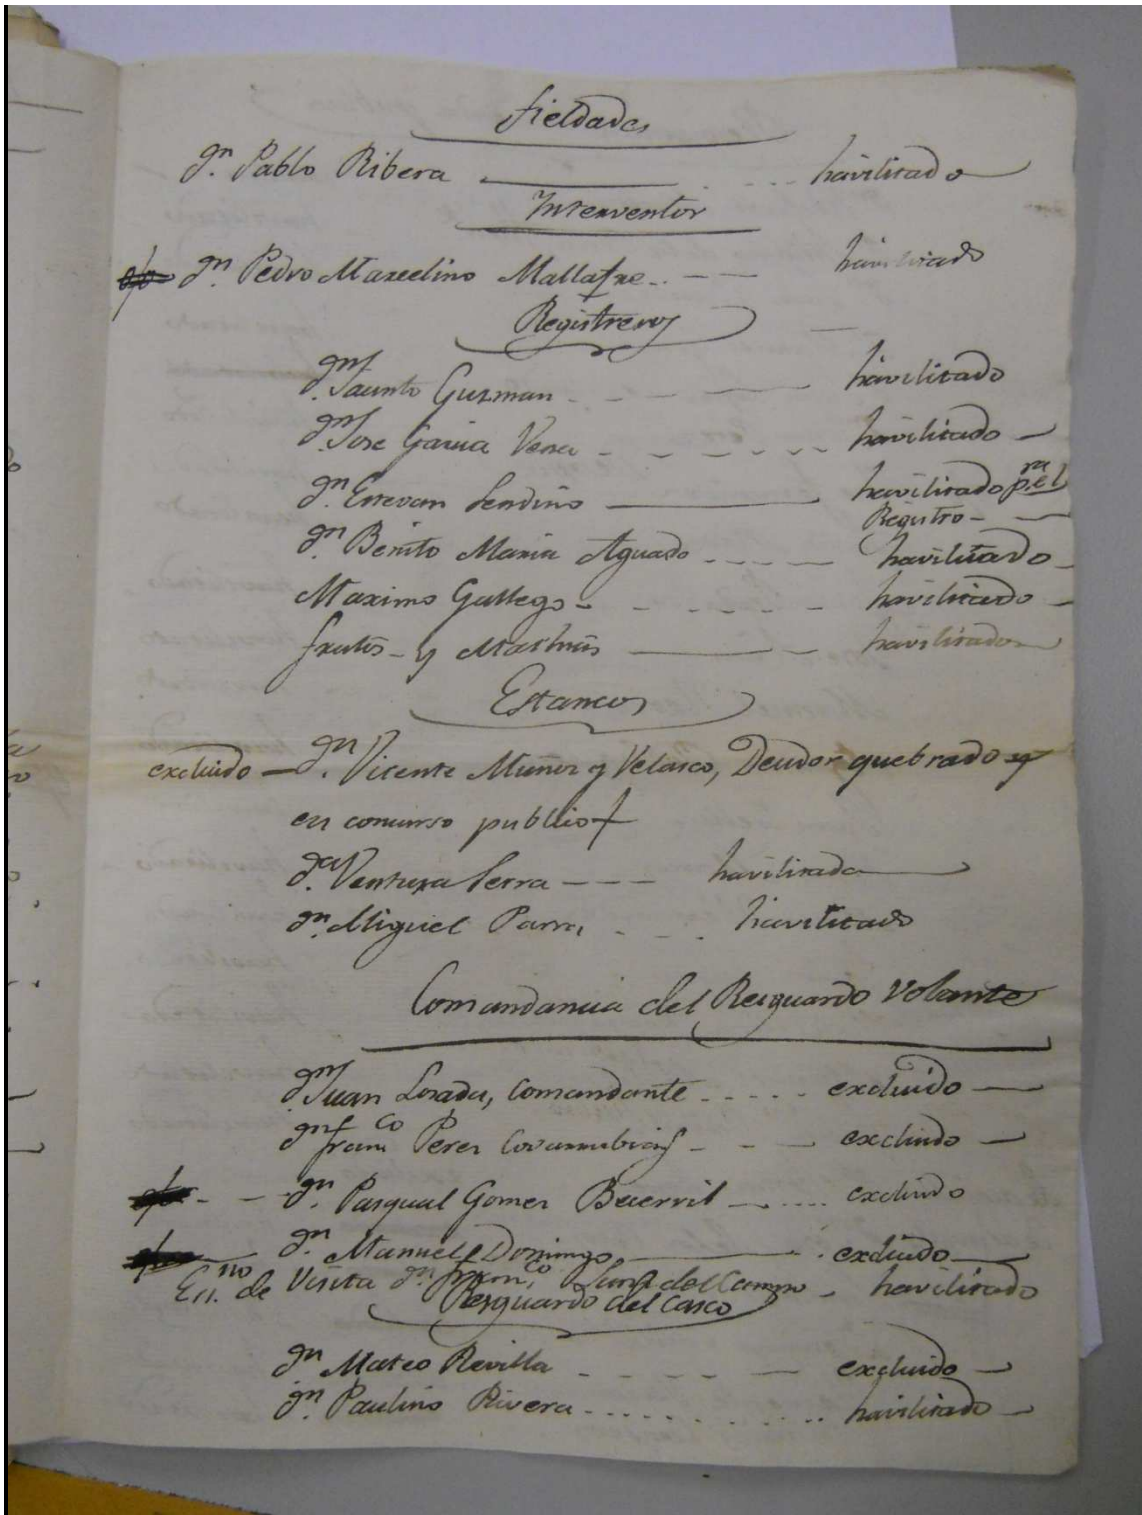 Fieldades
Dn. Pablo Ribera havilitado
Interventor
Dn. Pedro Marcelino Mallafre havilitado
Registreros
Dn. Jacinto Guzman havilitado
Dn. Jose Garcia Vera havilitado
Dn. Estevan Sendino havilitado pra. el
Registro
Dn. Benito Maria Aguado havilitado
Maximo Gallego havilitado
frutos y Martinis havilitados
Estancos
excluido Dn. Vicente Muñoz y Velasco, Deudor quebrado y
en concurso publico
Da. Ventura Serra havilitada
Dn. Miguel Parra havilitado
Comandancia del Resguardo Volante
Dn. Juan Lozada, Comandante excluido
Dn. franco Perez Covarrubias excluido
Dn. Pasqual Gomez Becerril excluido
Dn. Manuel Domingo excluido
Esno. de Visita Dn. franco. del Campo havilitado
Resguardo del Casco
Dn. Mateo Revilla excluido
Dn. Paulino Rivera havilitado